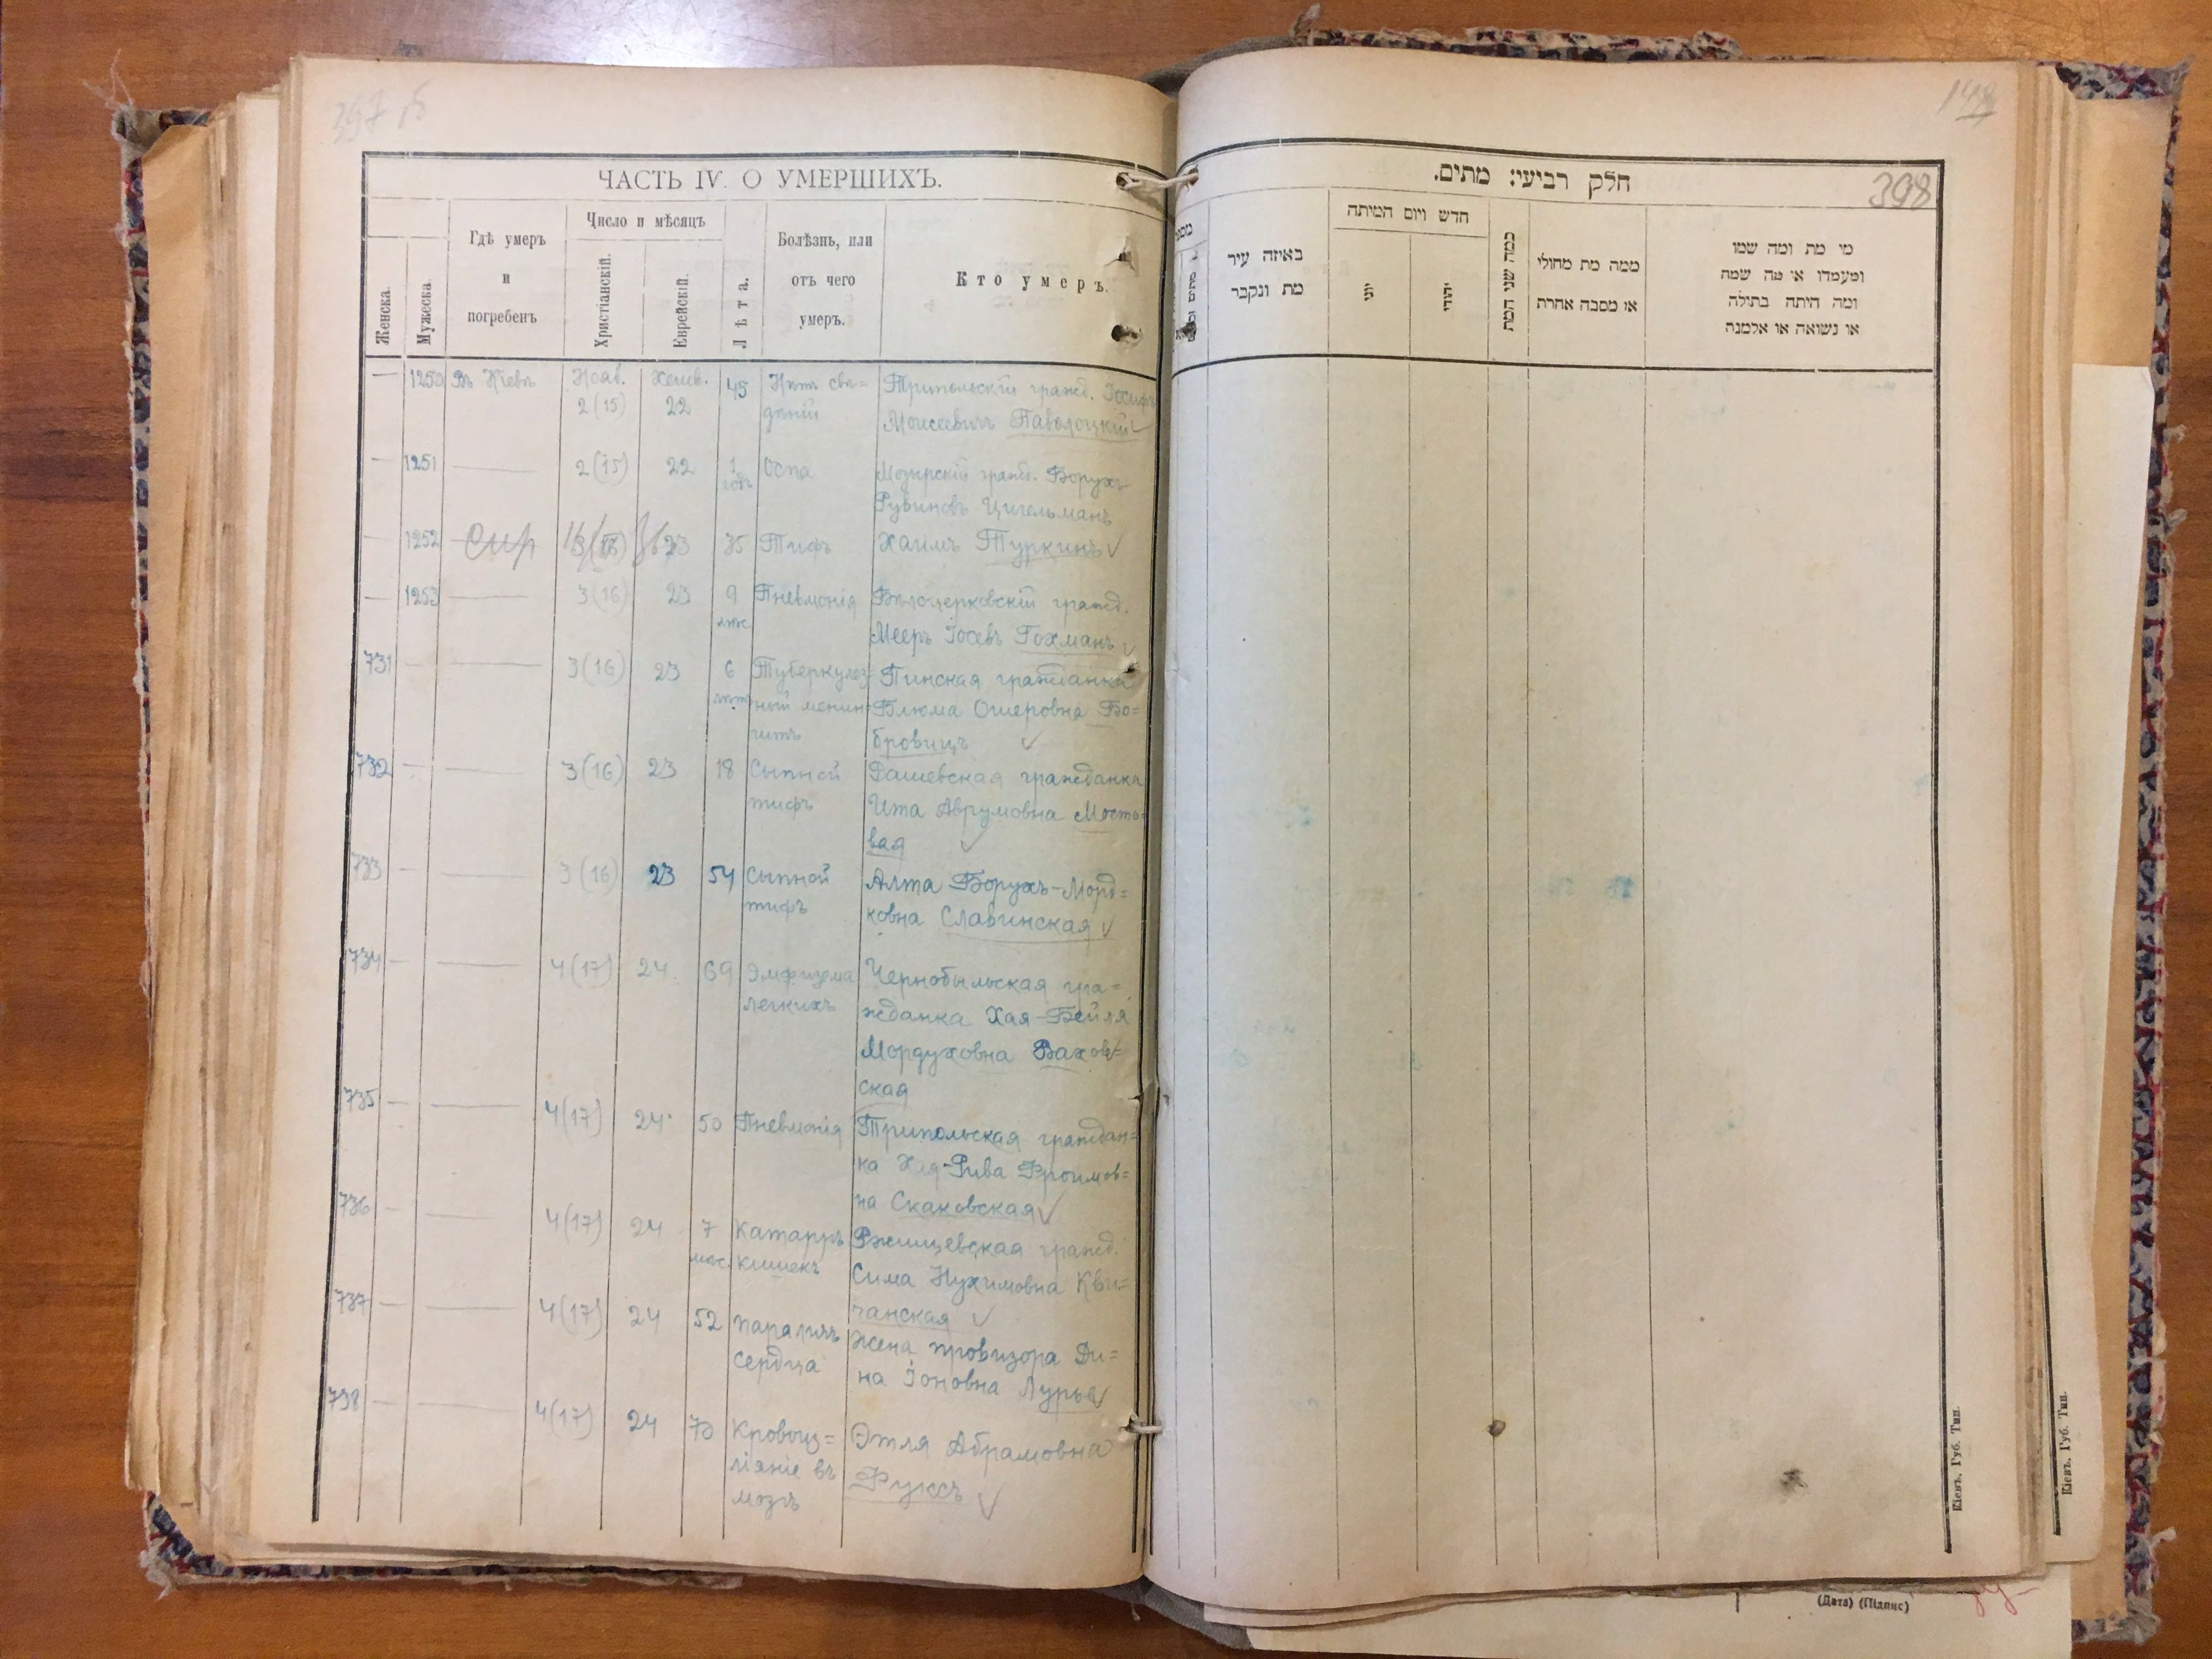 397 б
ЧАСТЬ IV. О УМЕРШИХЪ.
Женска.
Мужеска.
Гдѣ умеръ
и
погребенъ
Число и мѣсяцъ
Христіанскій.
Еврейскій.
Лѣта.
Болѣзнь, или
отъ чего
умеръ.
Кто умеръ.
— 1250 Въ Кіевѣ Нояб. 2 (15) Хешв. 22 45 Нѣтъ свѣ=
дѣній
Трипольскій гражд. Іосифъ
Моисеевичъ Паволоцкій
— 1251 — 2 (15) 22 1
годъ
Оспа
Мозырскій гражд. Борухъ
Рубиновъ Цигельманъ
— 1252 23 35 Тифъ Хаимъ Туркинъ
— 1253 — 3 (16) 23 9
мѣс.
Пневмонія
Бѣлоцерковскій гражд.
Мееръ Іосевъ Гохманъ
731 — — 3 (16) 23 6
лѣтъ
Туберкулез=
ный менин=
гитъ
Пинская гражданка
Блюма Ошеровна Бо=
бровицъ
732 — — 3 (16) 23 18 Сыпной
тифъ
Дашевская гражданка
Ита Аврумовна Мосто=
вая
733 — — 3 (16) 23 54 Сыпной
тифъ
Алта Борухъ-Морд=
ковна Славинская
734 — — 4 (17) 24 69 Эмфизема
легкихъ
Чернобыльская гра=
жданка Хая-Бейля
Мордуховна Вахов=
ская
735 — — 4 (17) 24 50 Пневмонія
Трипольская граждан=
ка Хая-Рива Фроимов=
на Скаковская
736 — — 4 (17) 24 7
мѣс.
Катарръ
кишекъ
Ржищевская гражд.
Сима Нухимовна Кви=
чанская
737 — — 4 (17) 24 52 Параличъ
сердца
Жена провизора Ди=
на Іоновна Лурье
738 — — 4 (17) 24 Кровоиз=
ліяніе въ
мозгъ
Этля Абрамовна
Фуксъ
חלק רביעי: מתים.
398
באיזה עיר
מת ונקבר
חדש ויום המיתה
יוני
יהודי
כמה שני המת
ממה מת מחולי
או מסבה אחרת
מי מת ומה שמו
ומעמדו או מה שמה
ומה היתה בתולה
או נשואה או אלמנה
Кіевъ. Губ. Тип.
Кіевъ. Губ. Тип.
(Дата) (Підпис)